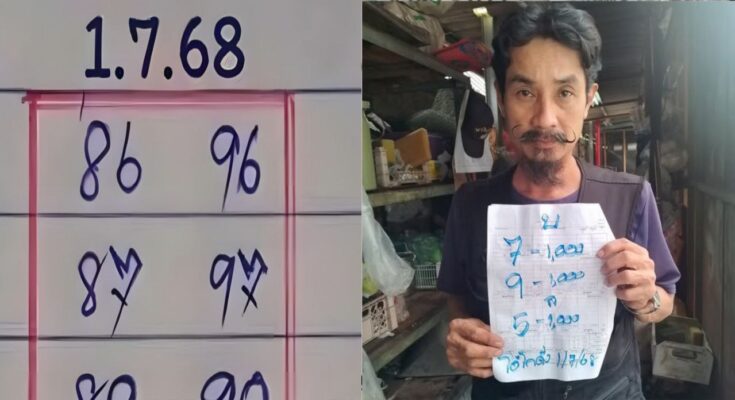 1.7.68
86 96
87 97
บ
7-1,000
9-1,000
ล
5-1,000
1/7/68